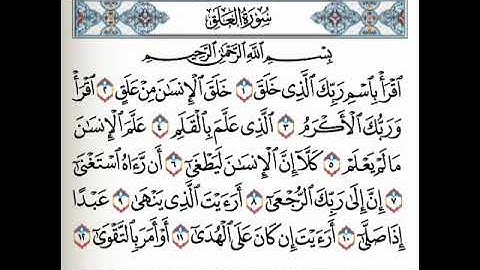 سُورَةُ العَلَقِ
بِسْمِ اللَّهِ الرَّحْمَٰنِ الرَّحِيمِ
اقْرَأْ بِاسْمِ رَبِّكَ الَّذِي خَلَقَ ١ خَلَقَ الْإِنسَانَ مِنْ عَلَقٍ ٢ اقْرَأْ
وَرَبُّكَ الْأَكْرَمُ ٣ الَّذِي عَلَّمَ بِالْقَلَمِ ٤ عَلَّمَ الْإِنسَانَ
مَا لَمْ يَعْلَمْ ٥ كَلَّا إِنَّ الْإِنسَانَ لَيَطْغَىٰ ٦ أَن رَّءَاهُ اسْتَغْنَىٰ
٧ إِنَّ إِلَىٰ رَبِّكَ الرُّجْعَىٰ ٨ أَرَءَيْتَ الَّذِي يَنْهَىٰ ٩ عَبْدًا
إِذَا صَلَّىٰ ١٠ أَرَءَيْتَ إِن كَانَ عَلَى الْهُدَىٰ ١١ أَوْ أَمَرَ بِالتَّقْوَىٰ ١٢